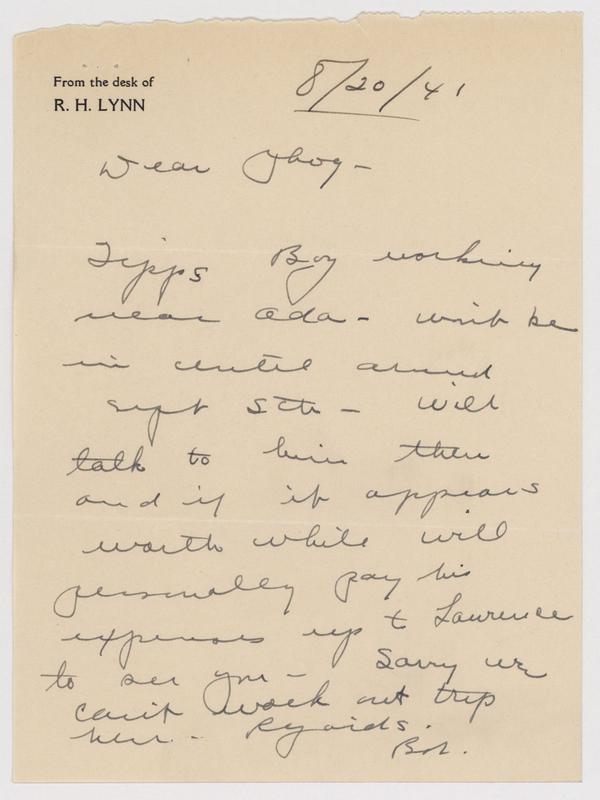 From the desk of
R. H. LYNN
8/20/41
Dear Phog -
Tipps Boy working
near Ada - won't be
in until around
Sept 5th - Will
talk to him then
and if it appears
worth while will
personally pay his
expenses up to Laurence
to see you - Sorry we
can't work out trip
here. - Regards.
Bob.